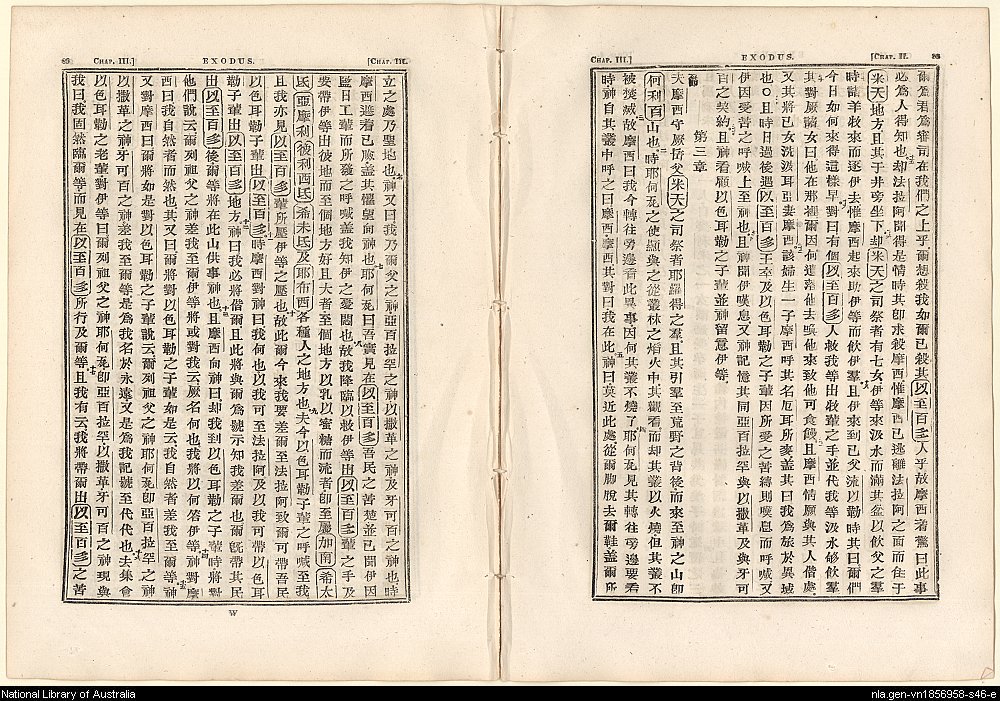 [CHAP. II. EXODUS. CHAP. III.]
爾為君為審司在我們之上乎爾想殺我如爾已殺其以至百多人乎故摩西著驚曰此事
必為人得知也却法拉阿聞得是情時其卽求殺摩西惟摩西已逃離法拉阿之面而住于
米天地方且其于井旁坐下却米天之司祭者有七女伊等來汲水而滿其盆以飲父之羣
時諸羊牧來而逐伊去惟摩西起來助伊等而飲伊羣且伊來到已父流以勒時其曰爾們
今日如何來得這樣早對曰有個以至百多人救我等出牧輩之手並代我等汲水够飲羣
其對厥諸女曰他在那裡爾因何遺落他去喚他來致他可食饅且摩西情願與其人偕處
又其將已女洗汲耳亞妻摩西該婦生一子摩西呼其名厄耳所麥盖其曰我為旅於異域
也○且時日過後適以至百多王卒及以色耳勒之子輩因所受之苦縛則嘆息而呼喊又
伊因受苦之呼喊上至神也且神聞伊嘆息又神記憶其同亞百拉罕與以撒革及與牙可
百之契約且神看顧以色耳勒之子輩並神留意伊等
第三章
夫摩西守厥岳父米天之司祭者耶羅得之羣且其引羣至荒野之背後而來至神之山卽
何利百山也時耶何瓦之使顯與之從叢林之焰火中其觀看而却其叢以火燒但其叢不
被焚滅故摩西曰我今轉往旁邊看此異事因何其叢不燒了耶何瓦見其轉往旁邊要看
時神自其叢中呼之曰摩西摩西其對曰我在此神曰莫近此處從爾脚脫去爾鞋盖爾所
[CHAP. III. EXODUS. CHAP. III.]
立之處乃聖地也神又曰我乃爾父之神亞百拉罕之神以撒革之神及牙可百之神也時
摩西遮着已臉盖其懼望向神也耶何瓦曰吾實見在以至百多吾民之苦楚並已聞伊因
監日工輩而所發之呼喊盖我知伊之憂悶也故我降臨以救伊等出以至百多輩之手及
要帶伊等出彼地而至個地方好且大者至個地方以乳以蜜糖而流者卽至厥加南希太
氐亞摩利彼利西氐希未氐及耶布西各種人之地方也夫今以色耳勒子輩之呼喊至我
且我亦見以至百多輩所壓伊等之壓也故此爾今來我要差爾至法拉阿致爾可帶吾民
以色耳勒子輩出以至百多時摩西對神曰我何也以我可至法拉阿及以我可帶以色耳
勒子輩出以至百多地方神曰我必將偕爾且此將與爾為號示知我差爾也爾旣帶其民
出以至百多後爾等將在此山供事神也且摩西向神曰却我到以色耳勒之子輩時將對
他們說云爾列祖父之神差我至爾伊等將或對我云厥名何也我將以何答伊等神對摩
西曰我自然者而然也其又曰爾將對以色耳勒之子輩如是云我自然者差我至爾等神
又對摩西曰爾將如是對以色耳勒之子輩說云爾列祖父之神耶何瓦卽亞百拉罕之神
以撒革之神牙可百之神差我至爾等是為我名於永遠又是為我記號至代代也去集會
以色耳勒之老輩對伊等曰爾列祖父之神耶何瓦卽亞百拉罕以撒革牙可百之神現與
我曰我固然臨爾等而見在以至百多所行及爾等且我有云我將帶爾出以至百多之苦
W
National Library of Australia
nla.gen-vn1856958-s46-e